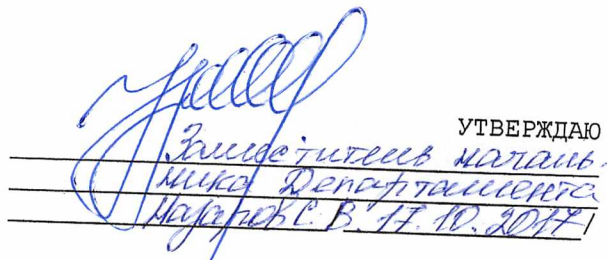 УТВЕРЖДАЮ
Заместитель началь-
ника Департамента
Назаров С.В. 17.10.2017